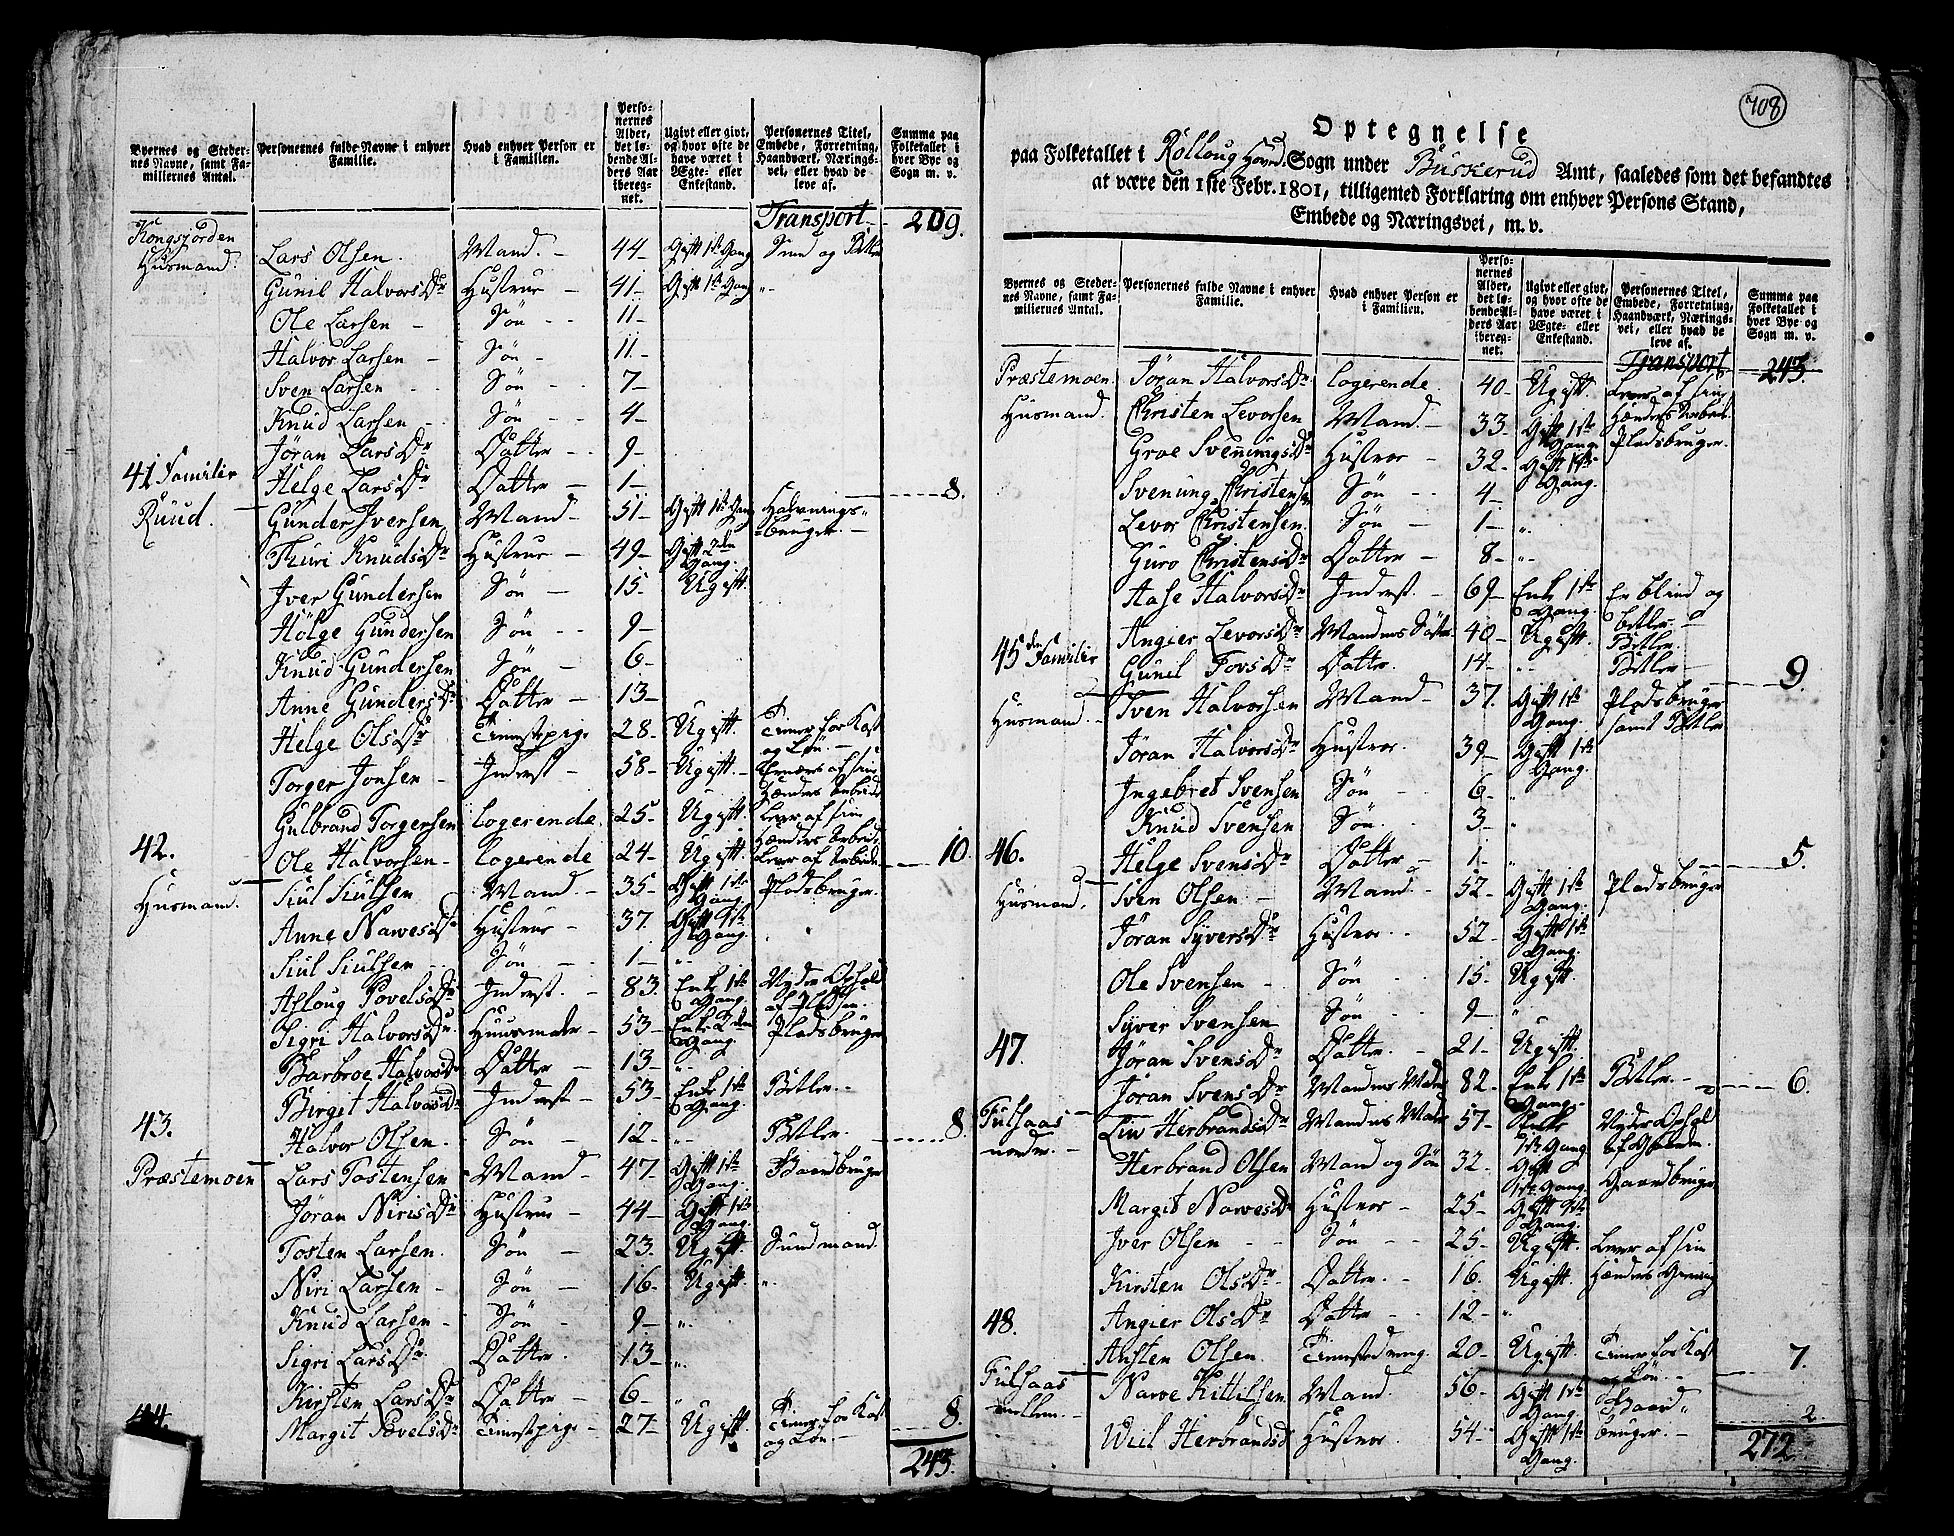 Byernes og Steder-
nes Navne, samt Fa-
miliernes Antal.
Personernes fulde Navne i enhver
Familie.
Hvad enhver Person er
i Familien.
Perso-
nernes
Alder,
det lø-
bende Al-
ders Aar
ibereg-
net.
Ugivt eller givt,
og hvor ofte de
have været i
Ægte- eller
Enkestand.
Personernes Titel,
Embede, Forretning,
Haandværk, Nærings-
vei, eller hvad de
leve af.
Summa paa
Folketallet i
hver Bye og
Sogn m. v.
Transport 209.
Kongsjorden
Husmand. Lars Olsen. Mand. 44 Gift 1ste Gang
Gunil Halvorsdr Hustrue 41 Gift 1ste Gang "
Ole Larsen Søn 11
Halvor Larsen Søn 11
Sven Larsen Søn 7
Knud Larsen Søn 4
Jöran Larsdr Datter 9
41 Familier Helge Larsdr Datter 1 8.
Ruud. Gunder Iversen Mand 51 Gift 1ste Gang Halvnings-
bruger.
Thuri Knudsdr Hustrue 49 Gift 2den
Gang.
Iver Gundersen Søn 15 Ugift.
Hölge Gundersen Søn 9
Knud Gundersen Søn 6
Anne Gundersdr Datter 13
Helge Olsdr Tienestepige 28 Ugift Tiener for Kost
og Løn.
Torger Jonsen Inderst 58 Ugift Ernæres af sine
Hænders Arbeide
Gulbrand Torgersen logerende 25 Ugift. Lever af sine
Hænders Arbeide
42. Ole Halvorsen logerende 24 Ugift. Lever af Arbeide 10.
Husmand. Siul Siulsen Mand 35 Gift 1ste
Gang. Pladsbruger.
Anne Narvesdr Hustrue 37 Gift 1ste
Gang.
Siul Siulsen Søn 1
Asloug Povelsdr Inderst. 83. Enke 1ste
Gang. Nyder Ophold
Sigri Halvorsdr Huusmoder 53 Enke 2den
Gang. Pladsbruger
Barbroe Halvorsdr Datter 13
Birgit Halvorsdr Inderst 53 Enke 1ste
Gang. Betler.
43. Halvor Olsen. Søn 12 Betler. 8.
Præstemoen Lars Tostensen Mand 47 Gift 1ste
Gang. Gaardbruger
Jöran Nirisdr Hustrue 44 Gift 1ste
Gang.
Tosten Larsen. Søn 23. Ugift.
Niri Larsen Søn 16 Ugift
Knud Larsen Søn 9
Sigri Larsdr Datter. 13
Kirsten Larsdr Datter 6
44 Margit Povelsdr Tienestepige 27 Ugift Tiener for Kost
og Løn. 8.
243.
708
Optegnelse
paa Folketallet i Rolloug Hoved Sogn under Buskerud Amt, saaledes som det befandtes
at være den 1ste Febr. 1801, tilligemed Forklaring om enhver Persons Stand,
Embede og Næringsvei, m. v.
Byernes og Steder-
nes Navne, samt Fa-
miliernes Antal.
Personernes fulde Navne i enhver
Familie.
Hvad enhver Person er
i Familien.
Perso-
nernes
Alder,
det lø-
bende Al-
ders Aar
ibereg-
net.
Ugivt eller givt,
og hvor ofte de
have været i
Ægte- eller
Enkestand.
Personernes Titel,
Embede, Forretning,
Haandværk, Nærings-
vei, eller hvad de
leve af.
Summa paa
Folketallet i
hver Bye og
Sogn m. v.
Transport 243.
Præstemoen Jöran Halvorsdr logerende. 40 Ugift. Lever af sine
Hænders Arbeide
Husmand. Christen Levorsen Mand. 33 Gift 1ste
Gang. Pladsbruger.
Groe Svenungsdr Hustroe 32 Gift 1ste
Gang.
Svenung Christensen Søn 4
Levor Christensen. Søn 1
Guro Christensdr Datter 8
Aase Halvorsdr Inderst. 69 Enke 1ste
Gang. Er blind og
betler.
Angier Levorsdr Mandens Søster 40 Ugift. Betler.
45de Familier Gunil Tovsdr Datter. 14 Betler 9.
Husmand. Sven Halvorsen Mand 37. Gift 1ste
Gang. Pladsbruger
samt Betler
Jöran Halvorsdr Hustroe. 39 Gift 1ste
Gang.
Ingebret Svensen Søn 6
Knud Svensen Søn. 3
46. Helge Svensdr Datter 1 5.
Husmand. Sven Olsen Mand. 52 Gift 1ste
Gang. Pladsbruger
Jöran Syversdr Hustroe. 52 Gift 1ste
Gang.
Ole Svensen Søn 15 Ugift.
Syver Svensen Søn 9
47. Jöran Svensdr Datter. 21 Ugift.
Jöran Svensdr Mandens Moder 82 Enke 1ste
Gang. Betler. 6.
Fulsaas
nordre. Liv Herbrandsdr Mandens Moder 57 Enke
1ste Gang Nyder Ophold
af Gaarden.
Herbrand Olsen Mand og Søn 32 Gift
1ste Gang. Gaardbruger
Margit Narvesdr Hustroe 25 Gift 1ste
Gang.
Iver Olsen Søn 25 Ugift. Lever af sine
Kirsten Olsdr Datter. 16. Ugift. Hænders Gierning
48. Angier Olsdr Datter 12
Austen Olsen Tienestedreng. 20 Ugift. Tiener for Kost
og Løn. 7.
Fulsaas
mellem. Narve Kittilsen Mand. 56 Gift 1ste
Gang. Gaard-
bruger.
Wiil Herbrandsd Hustroe 54 Gift 1ste
Gang. 2.
272